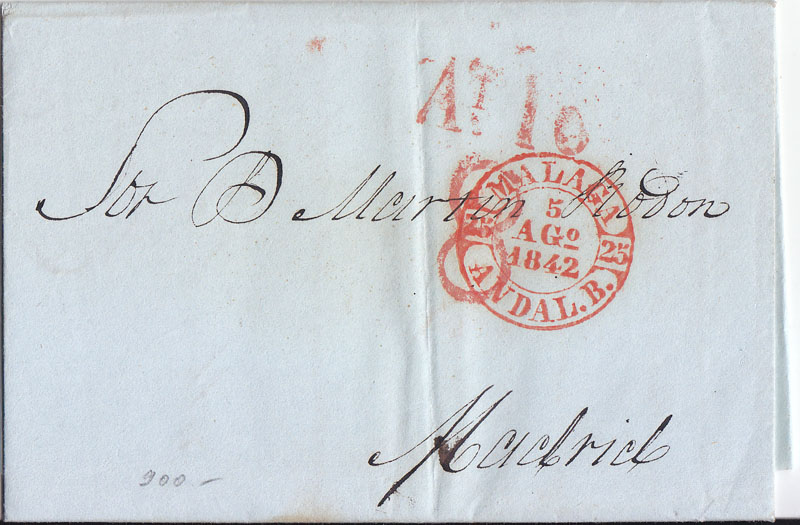 Aṛ 10
Sor D Martin Rodon
MALAGA
5
AGo
1842
25
ANDAL.B.
Madrid
900-